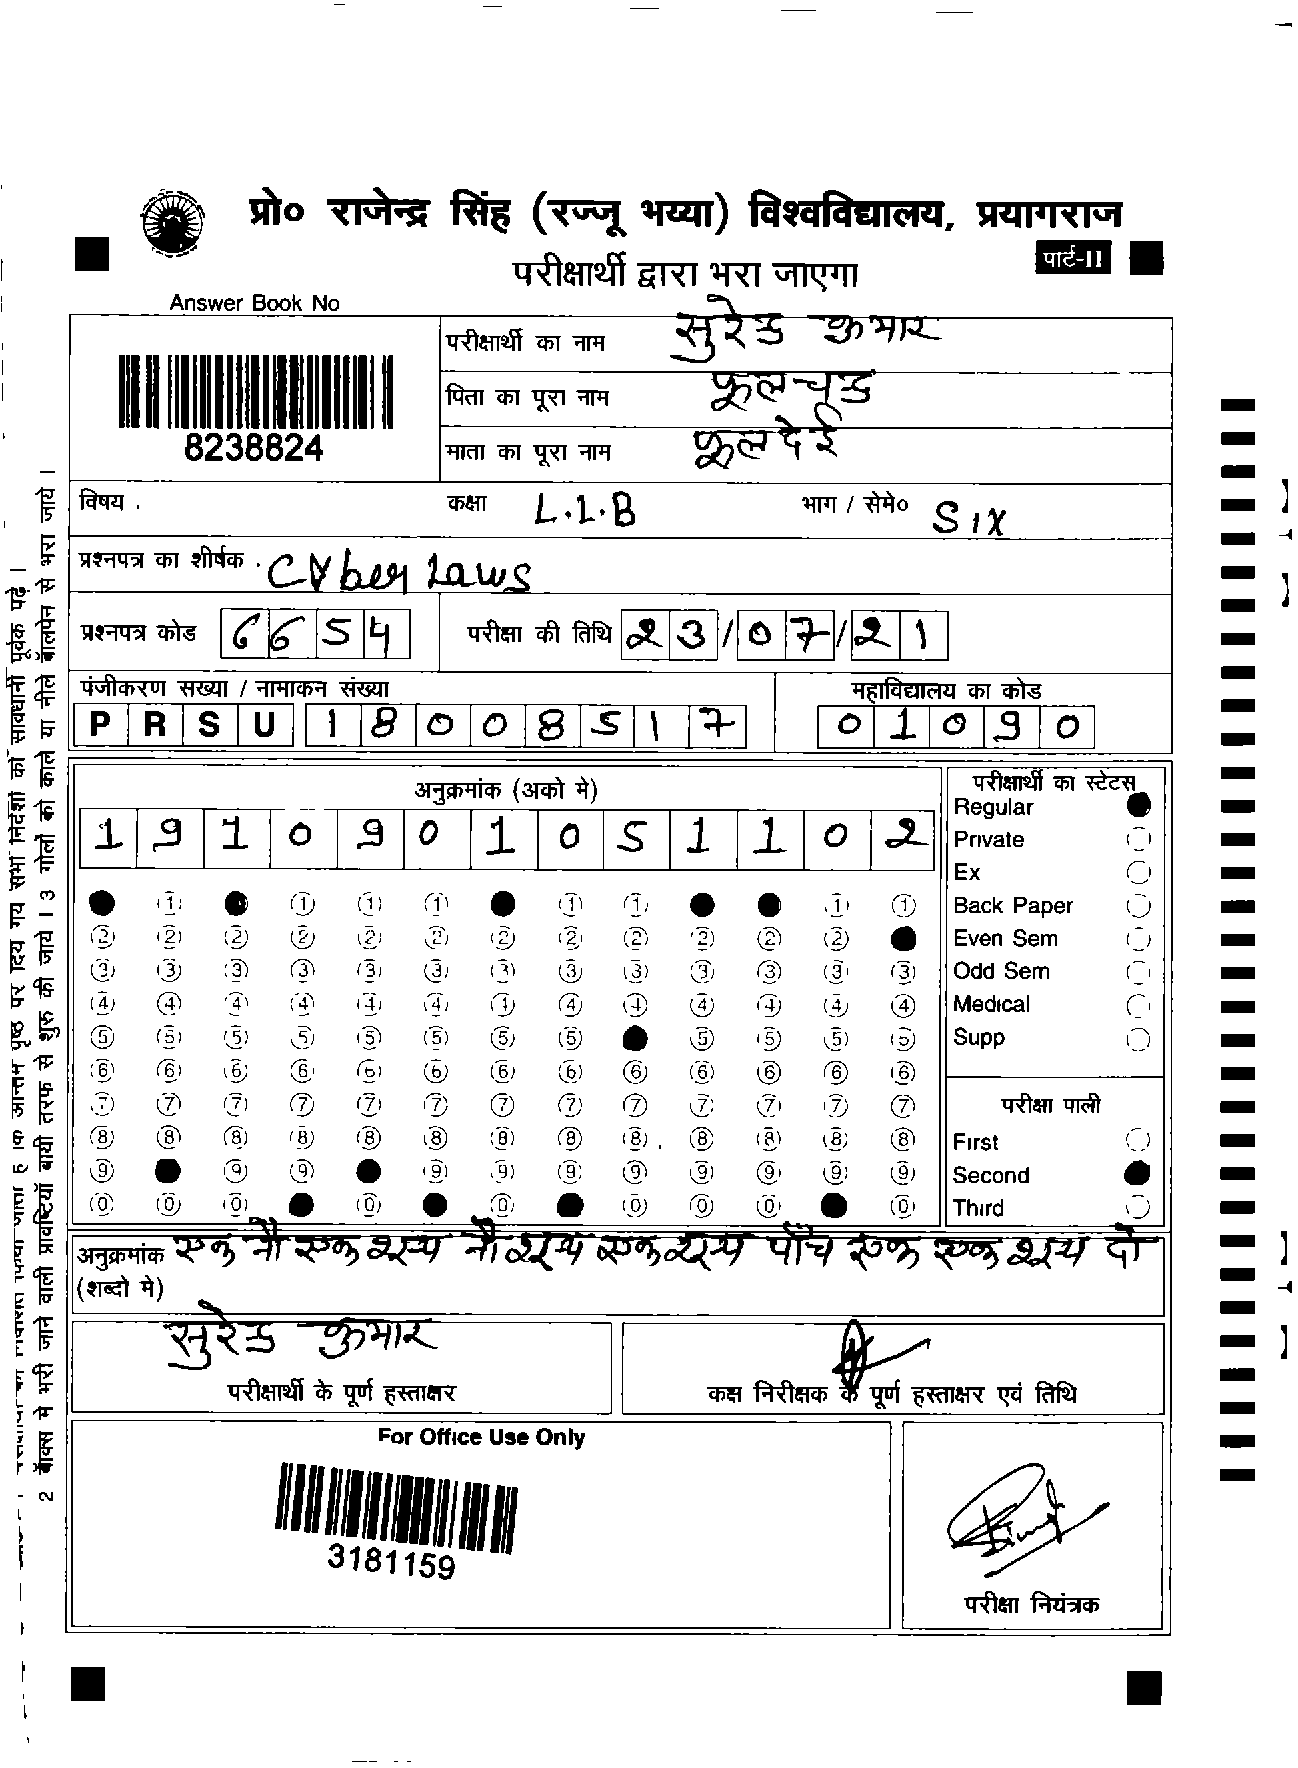 प्रो० राजेन्द्र सिंह (रज्जू भय्या) विश्वविद्यालय, प्रयागराज
पार्ट-II
परीक्षार्थी द्वारा भरा जाएगा
Answer Book No
8238824
परीक्षार्थी का नाम सुरेन्द्र कुमार
पिता का पूरा नाम फूलचन्द्र
माता का पूरा नाम फूलदेई
विषय . कक्षा L.L.B भाग / सेमे० Six
प्रश्नपत्र का शीर्षक . Cyber Laws
प्रश्नपत्र कोड 6654 परीक्षा की तिथि 23/07/21
पंजीकरण सख्या / नामाकन संख्या महाविद्यालय का कोड
P R S U 1 8 0 0 8 5 1 7 0 1 0 9 0
अनुक्रमांक (अको मे)
1 9 1 0 9 0 1 0 5 1 1 0 2
1 1 1 1 1 1 1 1
2 2 2 2 2 2 2 2 2 2 2 2
3 3 3 3 3 3 3 3 3 3 3 3 3
4 4 4 4 4 4 4 4 4 4 4 4 4
5 5 5 5 5 5 5 5 5 5 5 5
6 6 6 6 6 6 6 6 6 6 6 6 6
7 7 7 7 7 7 7 7 7 7 7 7 7
8 8 8 8 8 8 8 8 8 8 8 8 8
9 9 9 9 9 9 9 9 9 9 9
0 0 0 0 0 0 0 0 0
परीक्षार्थी का स्टेटस
Regular
Private
Ex
Back Paper
Even Sem
Odd Sem
Medical
Supp
परीक्षा पाली
First
Second
Third
अनुक्रमांक एक नौ एक शून्य नौ शून्य एक शून्य पाँच एक एक शून्य दो
(शब्दो मे)
सुरेन्द्र कुमार
परीक्षार्थी के पूर्ण हस्ताक्षर
कक्ष निरीक्षक के पूर्ण हस्ताक्षर एवं तिथि
For Office Use Only
3181159
परीक्षा नियंत्रक
2 बॉक्स मे भरी जाने वाली प्रविष्टियॉ बायी तरफ से शुरु की जाये । 3 गोलों को काले या नीले बॉलपेन से भरा जाये ।